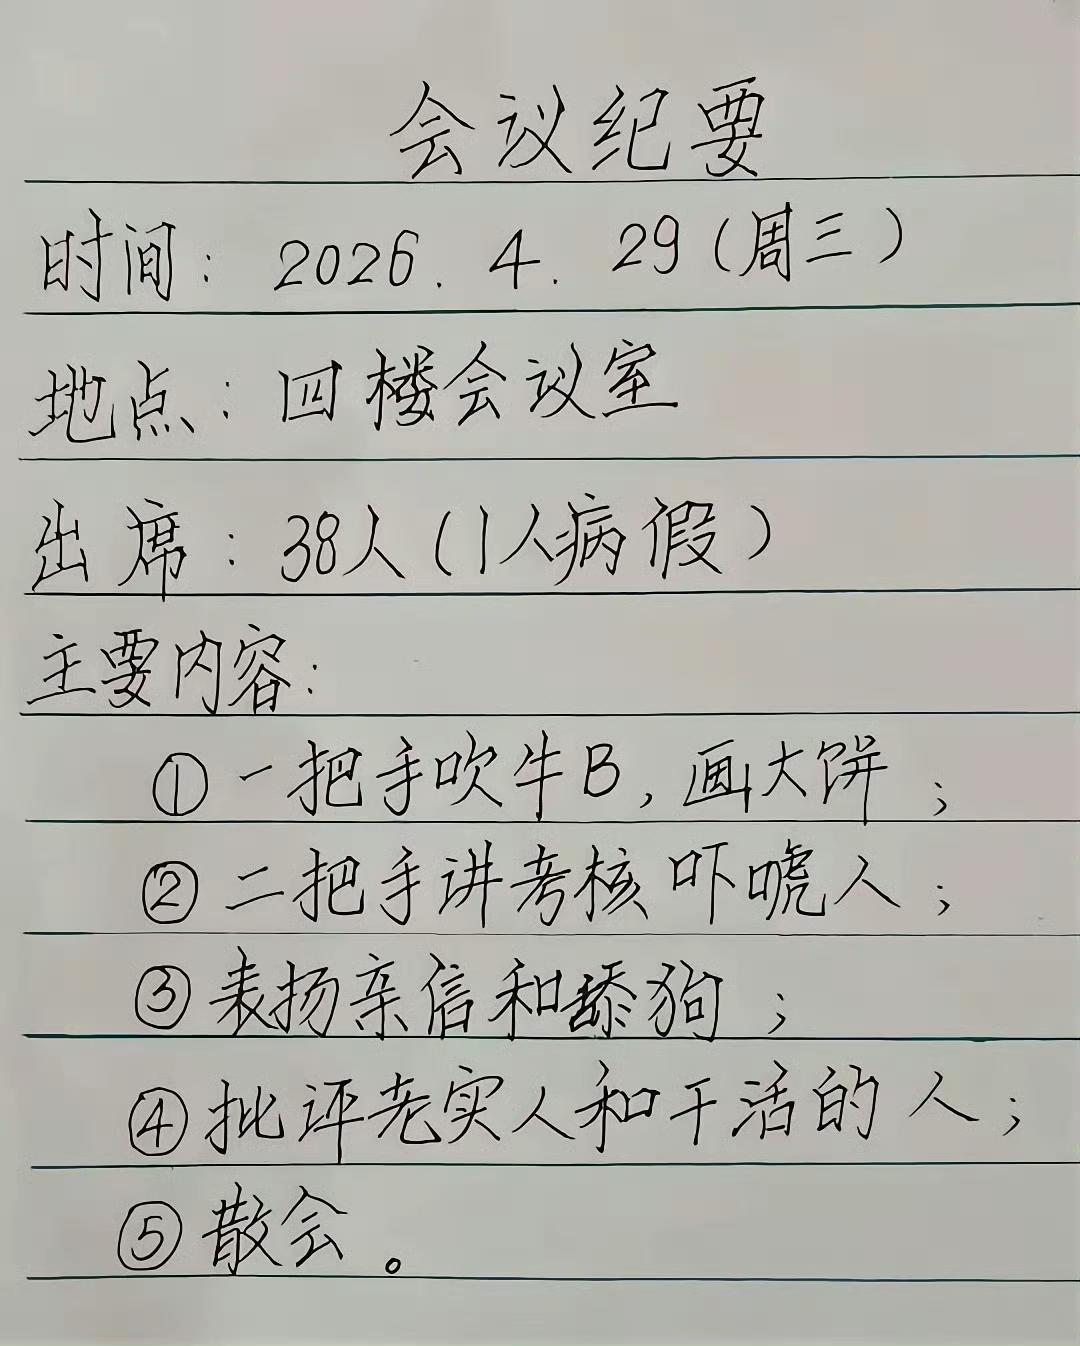 会议纪要
时间：2026.4.29（周三）
地点：四楼会议室
出席：38人（1人病假）
主要内容：
①一把手吹牛B，画大饼；
②二把手讲考核吓唬人；
③表扬亲信和舔狗；
④批评老实人和干活的人；
⑤散会。